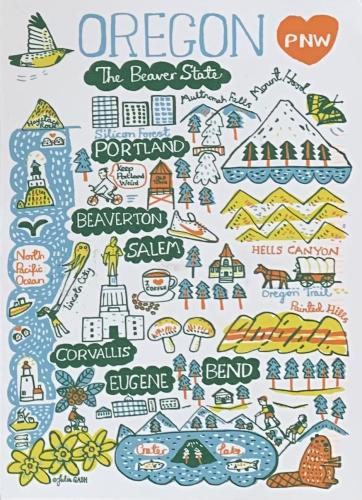 OREGON
PNW
The Beaver State
Multnomah Falls
Mount Hood
Haystack
Rock
Silicon Forest
PORTLAND
Keep
Portland
Weird
BEAVERTON
SALEM
North
Pacific
Ocean
Lincoln City
I
COFFEE
HELLS CANYON
Oregon Trail
Painted Hills
CORVALLIS
EUGENE
BEND
Crater Lake
©Julia GASH